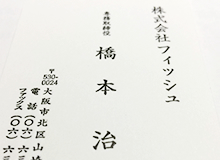 株式会社フィッシュ
専務取締役
橋本治
〒530-0024
大阪市北区山崎
電話(〇六)
ファックス(〇六)